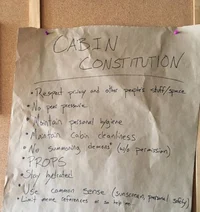 CABIN
CONSTITUTION
• Respect privacy and other people's stuff/space
• No peer pressure
• Maintain personal hygiene
• Maintain cabin cleanliness
• No summoning demons* (w/o permission)
• PROPS
• Stay hydrated
• Use common sense (sunscreen, personal safety)
• Limit meme references